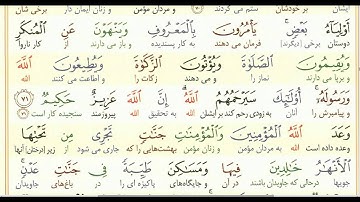 ایشان بر خودشان ستم می کردند و مردان مؤمن و زنان ایمان دار برخی شان
أَوْلِيَاءُ بَعْضٍ يَأْمُرُونَ بِالْمَعْرُوفِ وَيَنْهَوْنَ عَنِ الْمُنكَرِ
دوستان برخی (دیگرند) فرمان می دهند به کار پسندیده و باز می دارند از کار ناروا
وَيُقِيمُونَ الصَّلَوٰةَ وَيُؤْتُونَ الزَّكَوٰةَ وَيُطِيعُونَ اللَّهَ
و برپا می دارند نماز را و می دهند زکات را و اطاعت می کنند الله
وَرَسُولَهُ أُوْلَٰئِكَ سَيَرْحَمُهُمُ اللَّهُ إِنَّ اللَّهَ عَزِيزٌ حَكِيمٌ ٧١
و پیامبرش را آنان به زودی رحم کند بر ایشان الله به تحقیق الله پیروزمند سنجیده کار است
وَعَدَ اللَّهُ الْمُؤْمِنِينَ وَالْمُؤْمِنَٰتِ جَنَّٰتٍ تَجْرِي مِن تَحْتِهَا
وعده داده است الله به مردان مؤمن و زنان مؤمن بهشت‌هایی را که جاری می شود از زیر (درختان) آنها
الْأَنْهَٰرُ خَٰلِدِينَ فِيهَا وَمَسَٰكِنَ طَيِّبَةً فِي جَنَّٰتِ عَدْنٍ
جویها درحالی که جاویدان باشند در آن و جایگاه‌های پاکیزه ای را در باغ‌های جاویدان